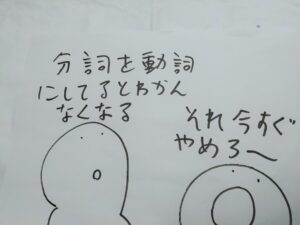 分詞を動詞
にしてるとわかん
なくなる
それ今すぐ
やめろ〜